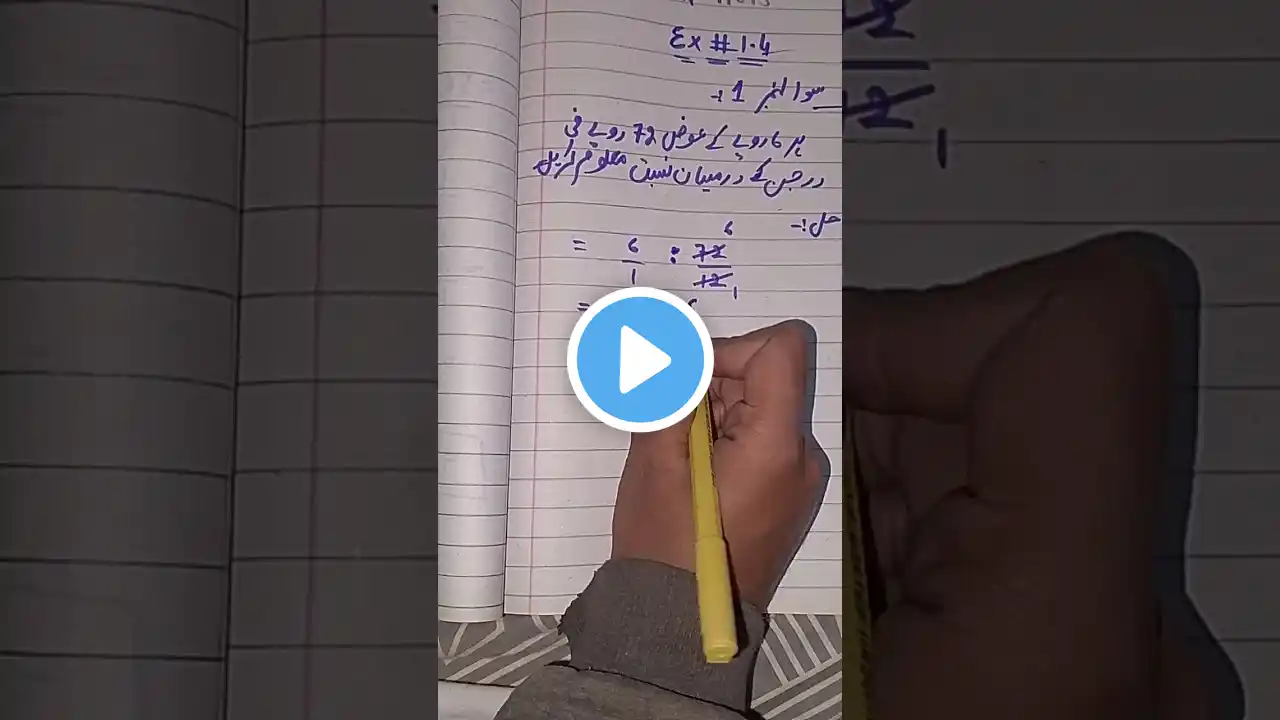 Ex # 1.4
سوال نمبر 1 :-
ہر 6 روپے کے عوض 72 روپے فی
درجن کے درمیان نسبت معلوم کریں
حل :-
6
= 6/1 : 72/12 1
= 6